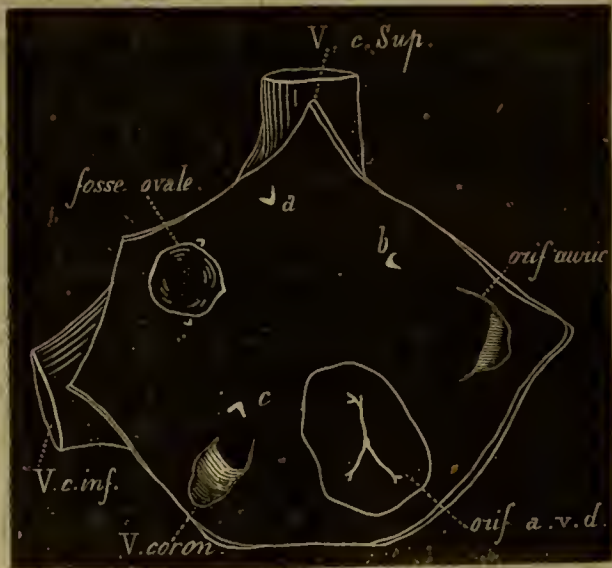 V. c. Sup.
fosse ovale.
a
b
orif auric
c
V. c. inf.
V. coron.
orif a.v.d.